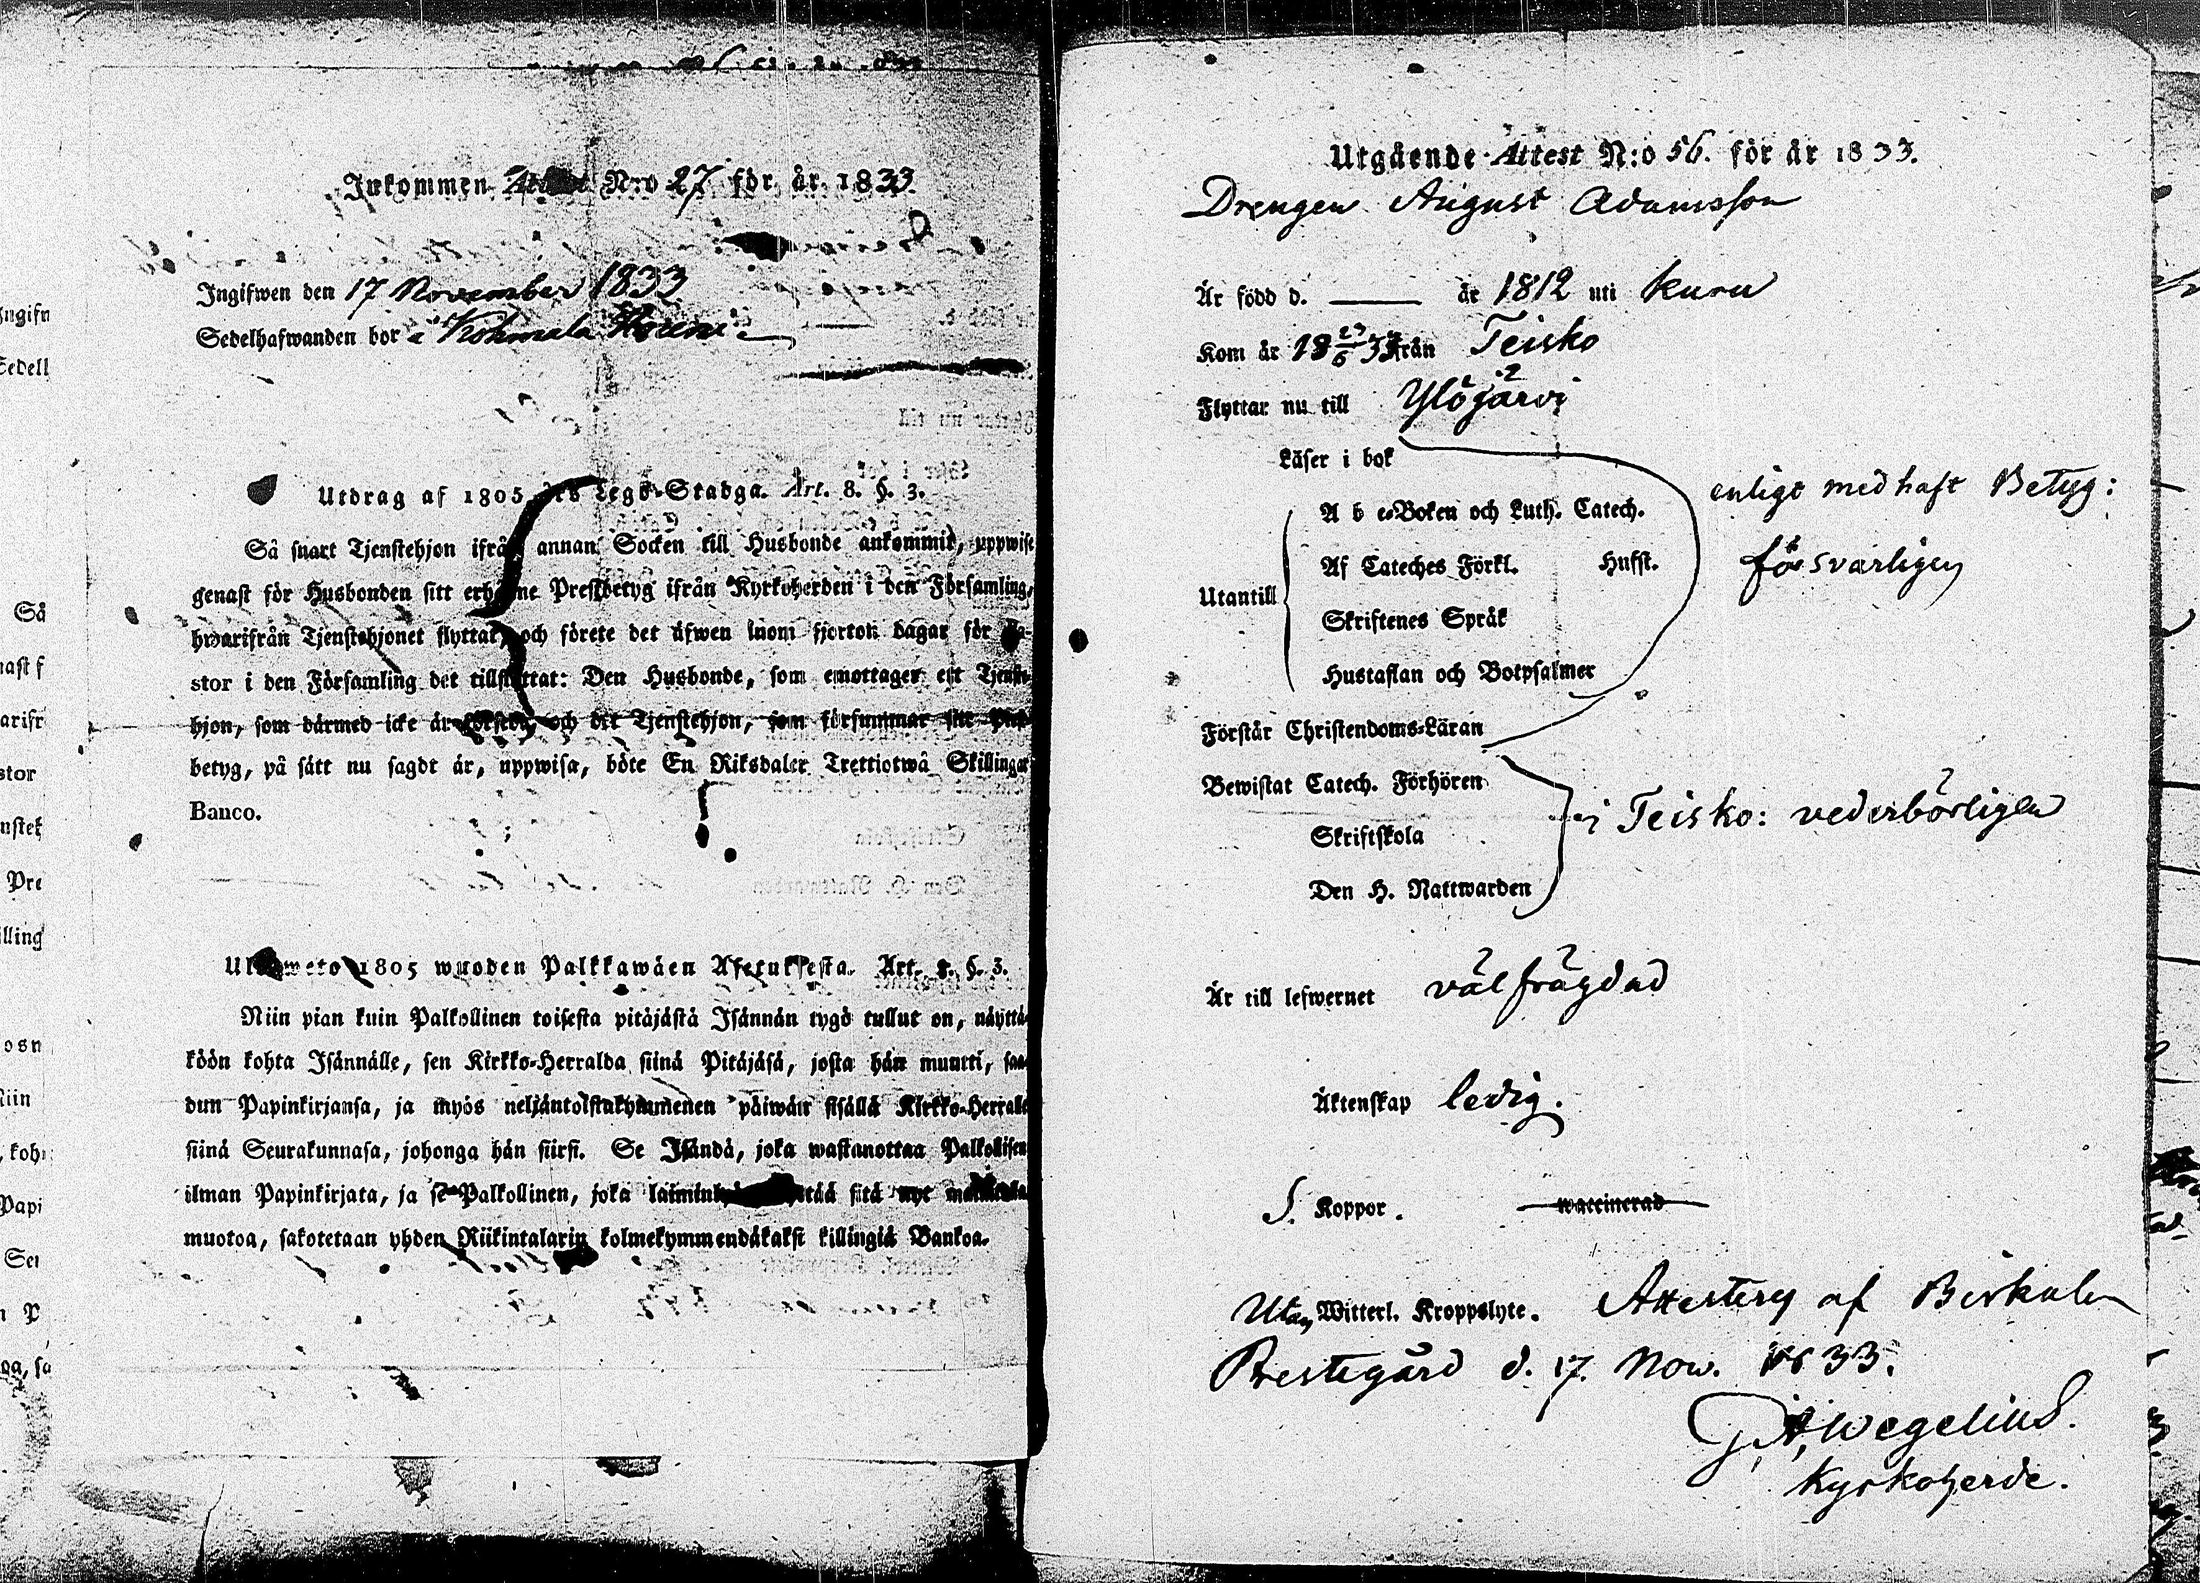 Inkommen N:o 27 för år 1833.
Ingifwen den 17 November 1833
Sedelhafwanden bor i Kohmala
Utdrag af 1805 Lego-Stadga. Art. 8. §. 3.
Så snart Tjenstehjon ifrån annan Socken till Husbonde ankommit, uppwise
genast för Husbonden sitt erhållne Prestbetyg ifrån Kyrkoherden i den Församling,
hwarifrån Tjenstehjonet flyttat, och förete det äfwen inom fjorton dagar för Pa-
stor i den Församling det tillflyttat: Den Husbonde, som emottager ett Tjenste-
hjon, som därmed icke är försedt, och det Tjenstehjon, som försummar sitt Prest-
betyg, på sätt nu sagdt är, uppwisa, böte En Riksdaler Trettiotwå Skillingar
Banco.
Ulosweto 1805 wuoden Palkkawäen Asetuksesta. Art. 8. §. 3.
Niin pian kuin Palkollinen toisesta pitäjästä Isännän tygö tullut on, näyttä-
köön kohta Isännälle, sen Kirkko-Herralda siinä Pitäjäsä, josta hän muutti, saa-
dun Papinkirjansa, ja myös neljäntoistakymmenen päiwän sisällä Kirkko-Herralle
siinä Seurakunnasa, johonga hän siirsi. Se Isändä, joka wastanottaa Palkollisen
ilman Papinkirjata, ja se Palkollinen, joka sitä nyt
muotoa, sakotetaan yhden Riikintalarin kolmekymmendäkaksi killingiä Bankoa.
Utgående Attest N:o 56. för år 1833.
Drengen August Adamsson
Är född d. —— år 1812 uti Kuru
Kom år 18 23/6 33 från Teisko
Flyttar nu till Ylöjärvi
Läser i bok
enligt medhaft Betyg:
A b c-Boken och Luth. Catech.
Af Cateches Förkl. Husst.
försvarligen
Utantill
Skriftenes Språk
Hustaflan och Botpsalmer
Förstår Christendoms-Läran
Bewistat Catech. Förhören
i Teisko: vederbörligen
Skriftskola
Den H. Nattwarden
Är till lefwernet välfrägdad
Äktenskap ledig.
S. Koppor. waccinerad
Utan Witterl. Kroppslyte. Attesteras af Birkala
Prestegård d. 17. Nov. 1833.
G. A. Wegelius.
Kyrkoherde.